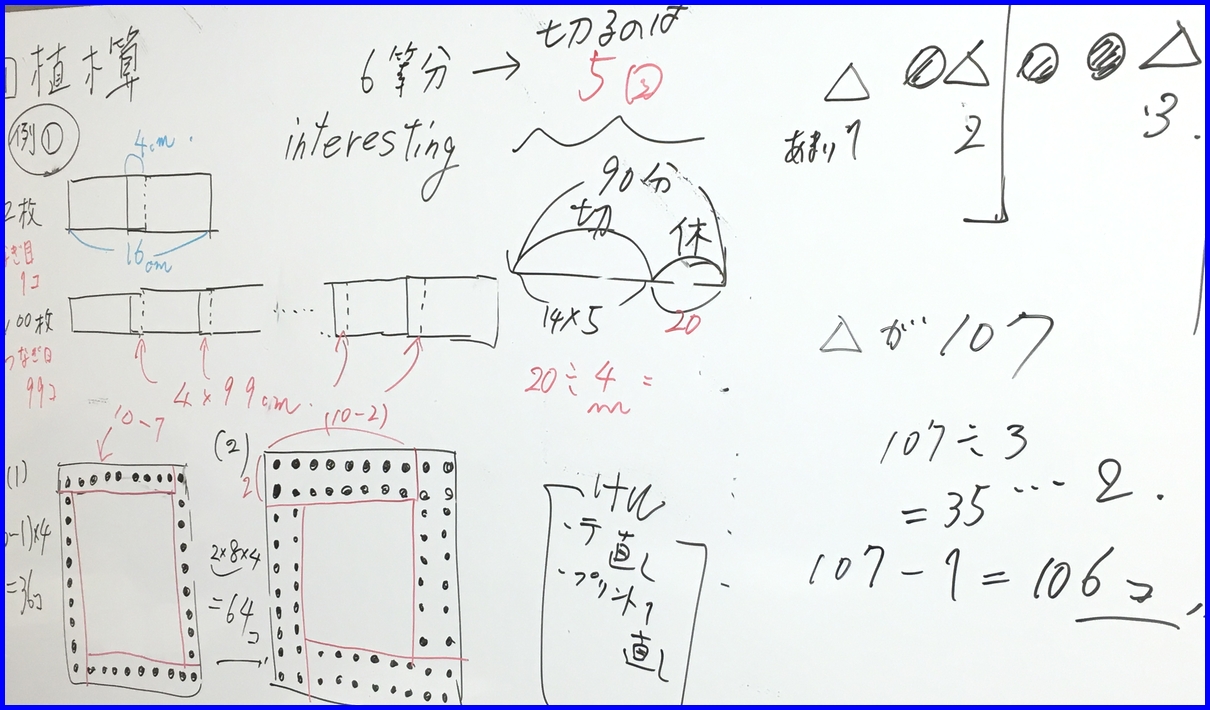 植木算
例①
4cm
2枚
16cm
ぎ目
1コ
100枚
つなぎ目
99コ
4×99cm
6等分 → 切るのは
5回
interesting
90分
切
休
14×5
20
20÷4=
あまり1
2
3
△が107
107÷3
=35…2
107-1=106コ
(1)
10-1
-1)×4
=36コ
(2)
(10-2)
2
2×8×4
=64コ
・テ直し
・プリント1
直し